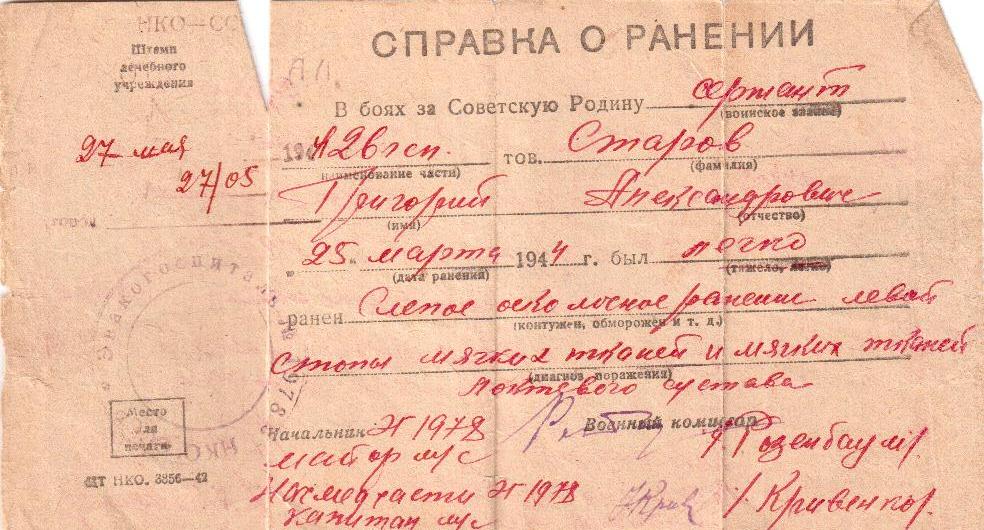 НКО—СС
Штамп
лечебного
учреждения
27 мая
27/05
СПРАВКА О РАНЕНИИ
В боях за Советскую Родину сержант
(воинское звание)
126 гсп. тов. Старов
(наименование части) (фамилия)
Григорий Александрович
(имя) (отчество)
„25" марта 1944 г. был легко
(дата ранения) (тяжело, легко)
ранен Слепое осколочное ранение левой
(контужен, обморожен и т. д.)
стопы мягких тканей и мягких тканей
(диагноз поражения)
локтевого сустава
Место
для
печати
Начальник ЭГ 1978 Военный комиссар
майор м/с /Розенбаум/.
Начмедчасти ЭГ 1978 /Кривенко/.
капитан м/с
НКО. 3856—42
Эвакогоспиталь
1978
НКО